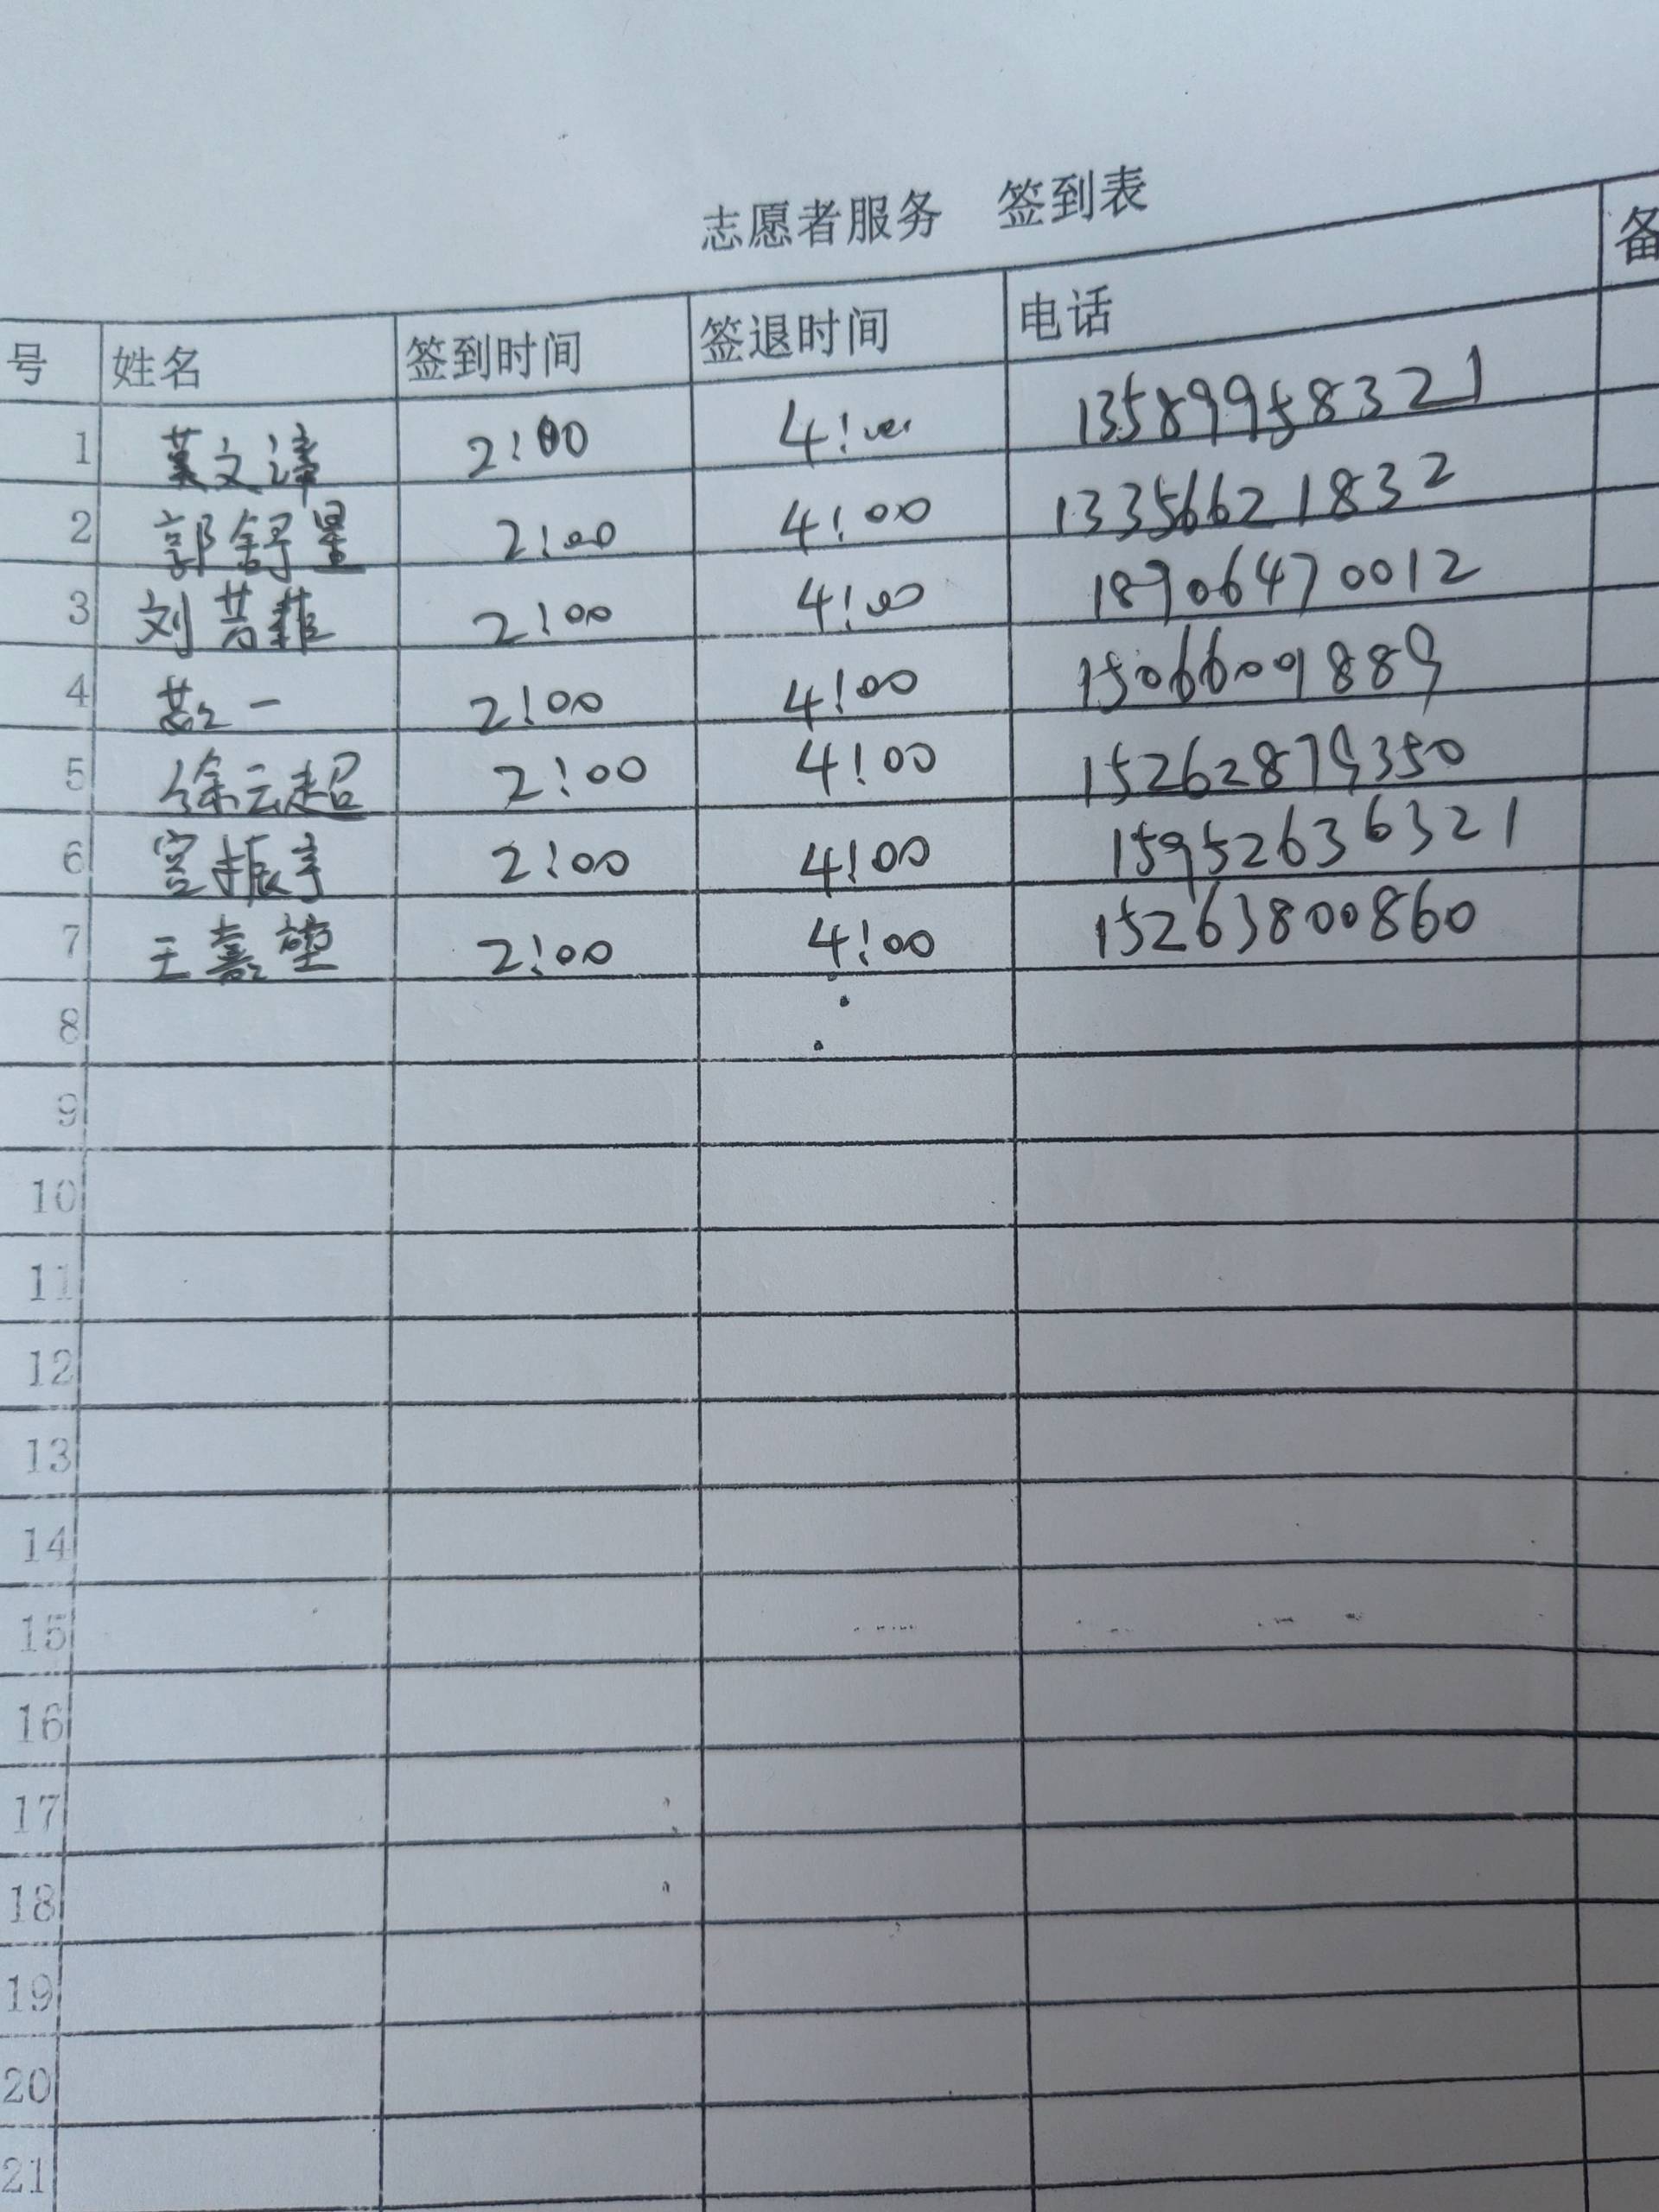 志愿者服务 签到表
号 姓名 签到时间 签退时间 电话 备
1 文 2:00 4: 13589958321
2 郭舒 2:00 4:00 13356621832
3 刘芸菲 2:00 4:00 18906470012
4 一 2:00 4:00 15066091889
5 徐云超 2:00 4:00 15262879350
6 宫振宇 2:00 4:00 15952636321
7 王嘉堃 2:00 4:00 15263800860
8
9
10
11
12
13
14
15
16
17
18
19
20
21